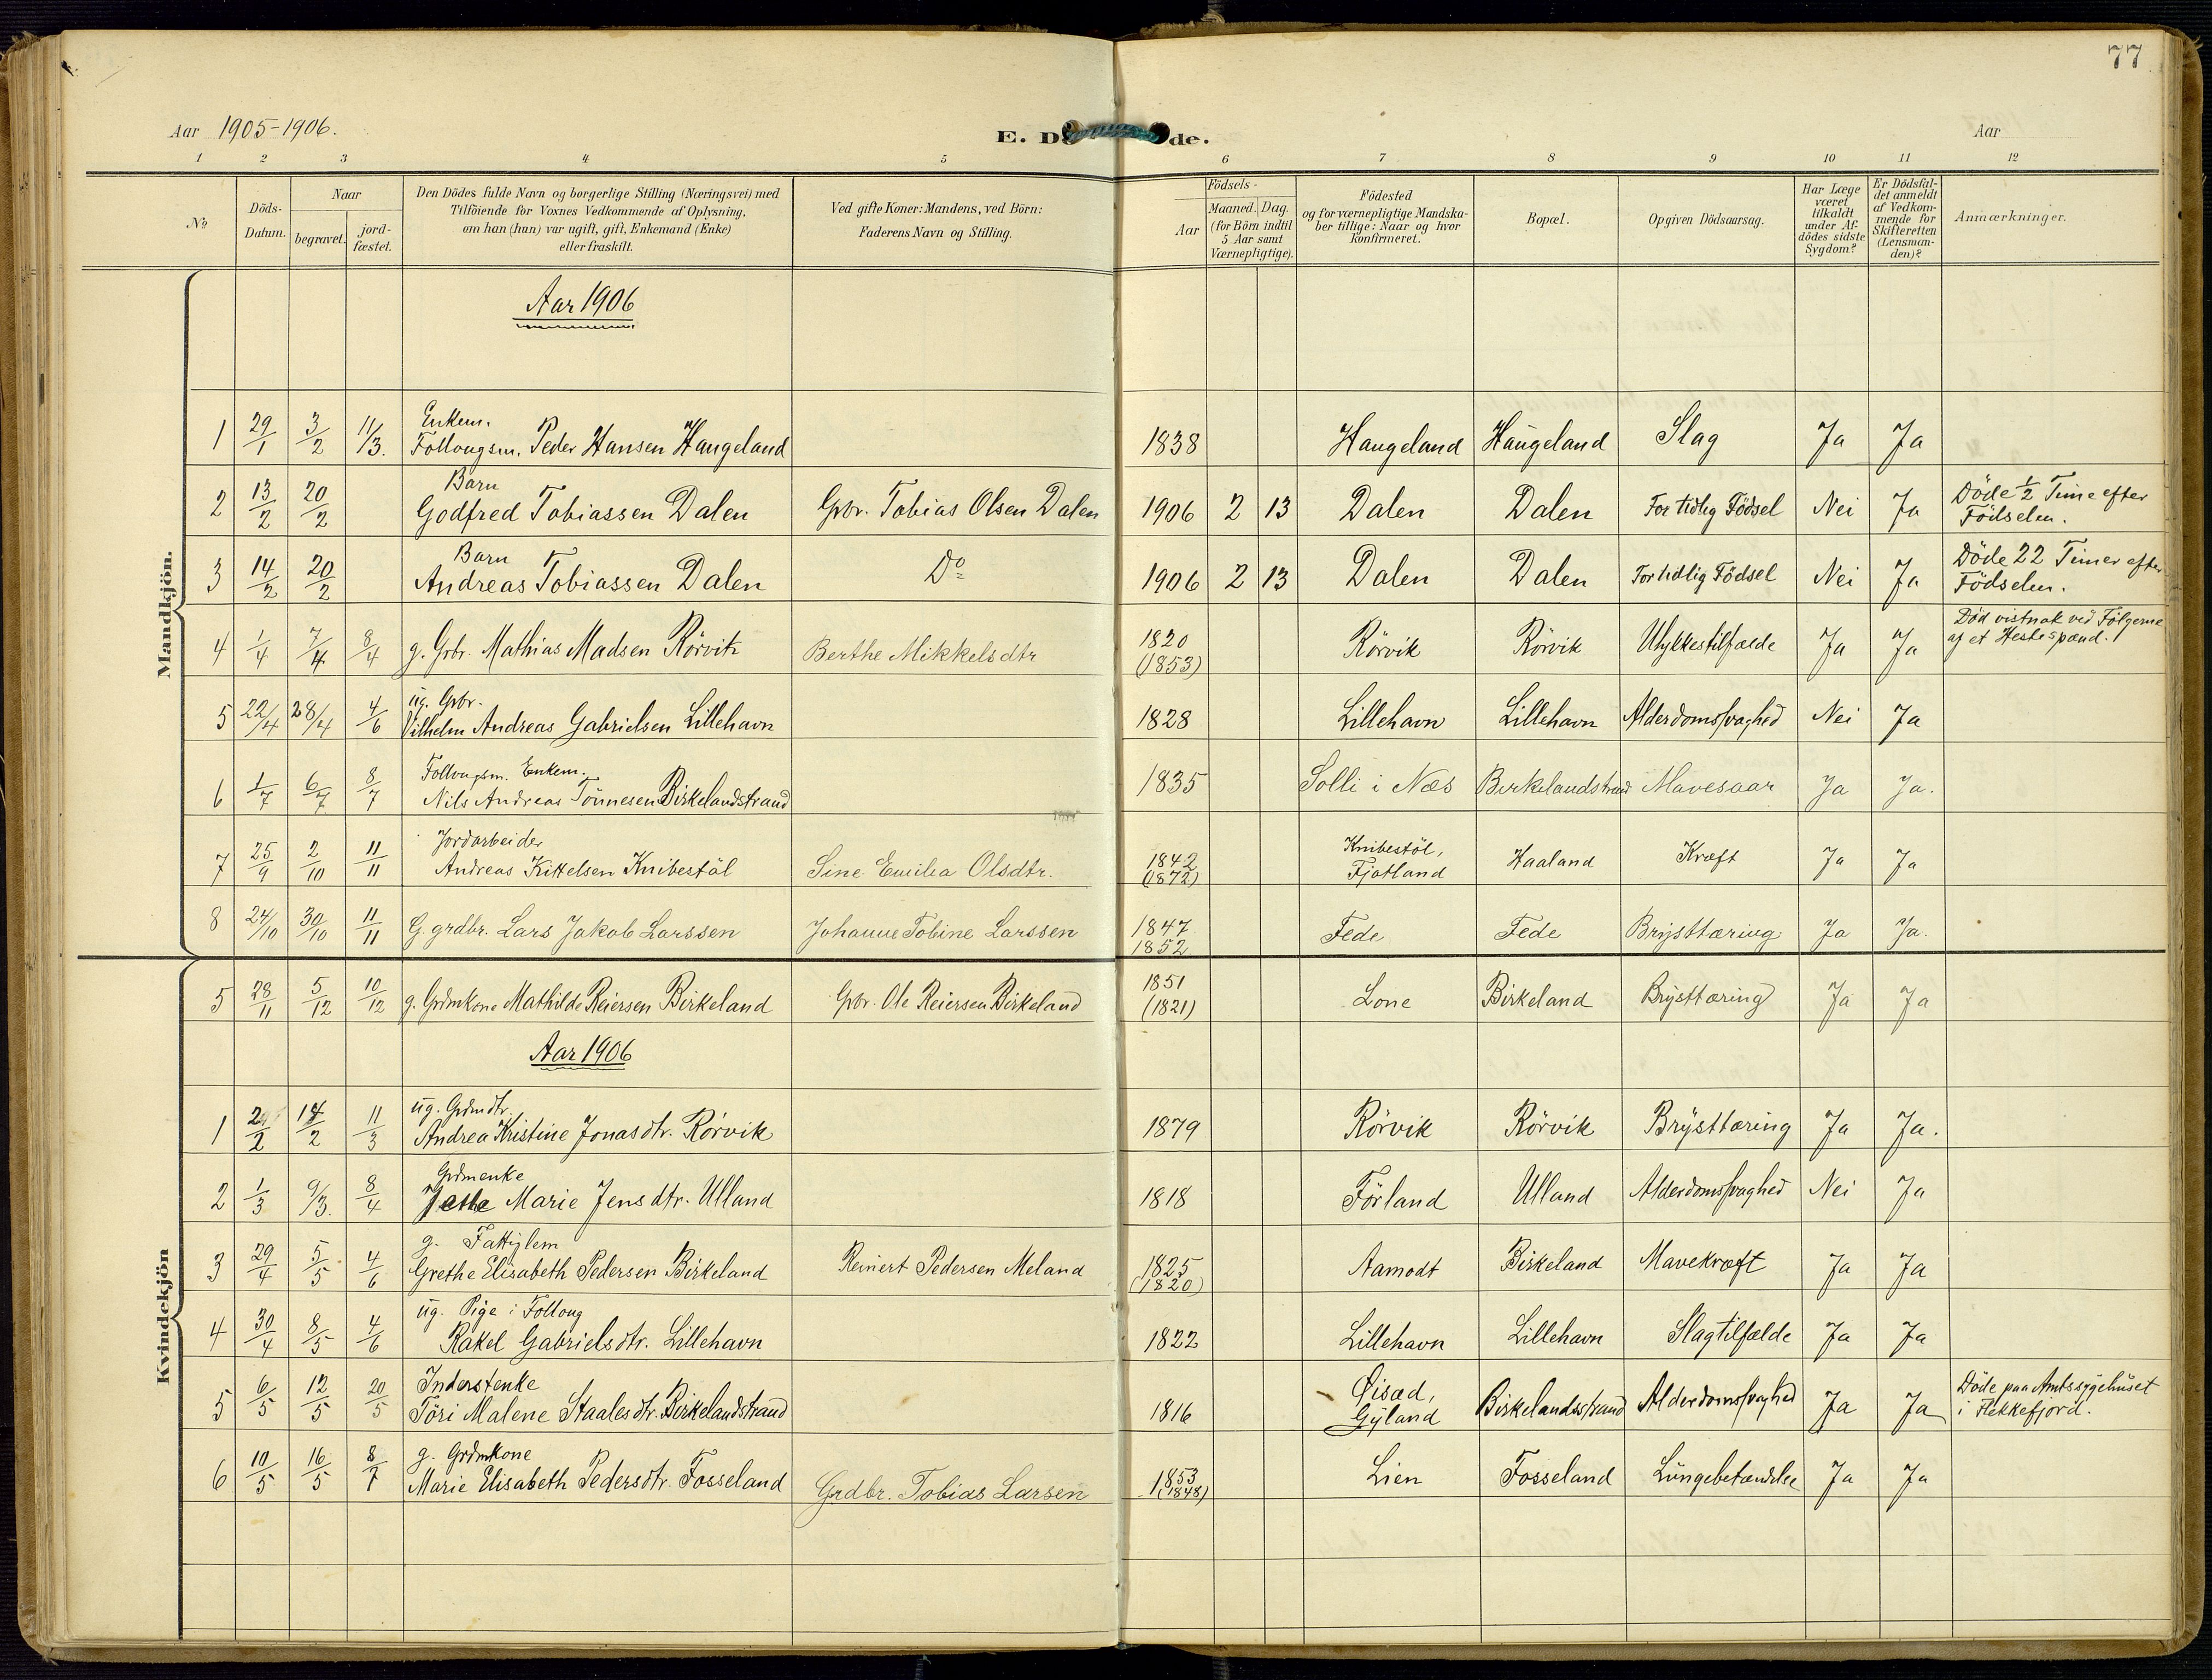 77
Aar 1905-1906.
E. Dö de.
Aar
1 2 3 4 5 6 7 8 9 10 11 12
No
Döds-Datum.
Naar
begravet.
jord-fæstet.
Den Dödes fulde Navn og borgerlige Stilling (Næringsvei) med
Tilföiende for Voxnes Vedkommende af Oplysning,
om han (hun) var ugift, gift, Enkemand (Enke)
eller fraskilt.
Ved gifte Koner: Mandens, ved Börn:
Faderens Navn og Stilling.
Födsels-
Aar
Maaned. Dag.
(for Börn indtil
5 Aar samt
Værnepligtige).
Födested
og for værnepligtige Mandska-
ber tillige: Naar og hvor
konfirmeret.
Bopæl.
Opgiven Dödsaarsag.
Har Læge
været
tilkaldt
under Af-
dödes sidste
Sygdom?
Er Dödsfal-
det anmeldt
af Vedkom-
mende for
Skifteretten
(Lensman-
den)?
Anmærkninger.
Mandkjön.
Aar 1906
Enkem.
1 29/1 3/2 11/3. Follougsm. Peder Hansen Haugeland 1838 Haugeland Haugeland Slag Ja Ja
Barn
2 13/2 20/2 Godfred Tobiassen Dalen Gbr. Tobias Olsen Dalen 1906 2 13 Dalen Dalen For tidlig Födsel Nei Ja Döde 1/2 Time efter
Födselen.
Barn
3 14/2 20/2 Andreas Tobiassen Dalen Do 1906 2 13 Dalen Dalen For tidlig Födsel Nei Ja Döde 22 Timer efter
Födselen.
4 1/4 7/4 8/4 g. Grbr. Mathias Madsen Rörvik Berthe Mikkelsdtr 1820
(1853) Rörvik Rörvik Ulykkestilfælde Ja Ja Död vistnok ved Fölgerne
af et Hestespænd.
ug. Grbr.
5 22/4 28/4 4/6 Vilhelm Andreas Gabrielsen Lillehavn 1828 Lillehavn Lillehavn Alderdomssvaghed Nei Ja
Follougsm. Enkem.
6 1/7 6/7 8/7 Nils Andreas Tönnesen Birkelandstrand 1835 Solli i Næs Birkelandstrand Mavesaar Ja Ja.
Jordarbeider
7 25/9 2/10 11/11 Andreas Kittelsen Knibestöl Sine Emilia Olsdtr. 1842
(1872) Knibestöl,
Fjotland Haaland Kræft Ja Ja
8 24/10 30/10 11/11 G. grdbr. Lars Jakob Larssen Johanne Tobine Larssen 1847
1852 Fede Fede Brysttæring Ja Ja.
Kvindekjön
5 28/11 5/12 10/12 g. Grdmkone Mathilde Reiersen Birkeland Gbr. Ole Reiersen Birkeland 1851
(1821) Lone Birkeland Brysttæring Ja Ja
Aar 1906
ug. Grdmdtr.
1 2 /2 /2 11/3 Andrea Kristine Jonasdtr. Rörvik 1879 Rörvik Rörvik Brysttæring Ja Ja.
Grdmenke
2 1/3 9/3. 8/4 Marie Jensdtr. Ulland 1818 Förland Ulland Alderdomssvaghed Nei Ja
g. Fattiglem
3 29/4 5/5 4/6 Grethe Elisabeth Pedersen Birkeland Reinert Pedersen Meland 1825
(1820) Aamodt Birkeland Mavekræft Ja Ja
ug. Pige i Folloug
4 30/4 8/5 4/6 Rakel Gabrielsdtr. Lillehavn 1822 Lillehavn Lillehavn Slagtilfælde Ja Ja
Inderstenke
5 6/5 12/5 20/5 Töri Malene Staalesdtr. Birkelandstrand 1816 Öisæd,
Gyland Birkelandsstrand Alderdomssvaghed Ja Ja Döde paa Amtssygehuset
i Flekkefjord.
g. Grdmkone
6 10/5 16/5 8/7 Marie Elisabeth Pedersdtr. Fosseland Grdbr. Tobias Larsen 1853
(1848) Lien Fosseland Lungebetændelse Ja Ja